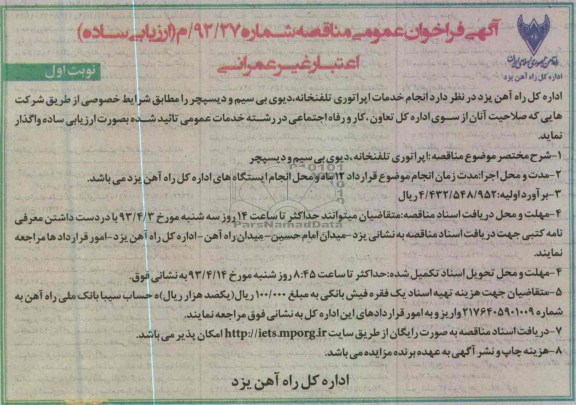 آگهی فراخوان عمومی مناقصه شماره ۹۳/۲۷/م(ارزیابی ساده)
اعتبار غیر عمرانی
نوبت اول
راه آهن جمهوری اسلامی ایران
اداره کل راه آهن یزد
اداره کل راه آهن یزد در نظر دارد انجام خدمات اپراتوری تلفنخانه،دیوی بی سیم و دیسپچر را مطابق شرایط خصوصی از طریق شرکت
هایی که صلاحیت آنان از سوی اداره کل تعاون ،کار و رفاه اجتماعی در رشته خدمات عمومی تائید شده بصورت ارزیابی ساده واگذار
نماید.
۱-شرح مختصر موضوع مناقصه:اپراتوری تلفنخانه،دیوی بی سیم و دیسپچر
۲-مدت و محل اجرا:مدت زمان انجام موضوع قرارداد ۱۲ماه و محل انجام ایستگاه های اداره کل راه آهن یزد می باشد.
۳-برآورد اولیه:۴/۴۳۲/۵۴۸/۹۵۲ ریال
۴-مهلت و محل دریافت اسناد مناقصه:متقاضیان میتوانند حداکثر تا ساعت ۱۴روز سه شنبه مورخ ۹۳/۴/۳ با در دست داشتن معرفی
نامه کتبی جهت دریافت اسناد مناقصه به نشانی یزد-میدان امام حسین-میدان راه آهن -اداره کل راه آهن یزد-امور قراردادها مراجعه
نمایند.
۴-مهلت و محل تحویل اسناد تکمیل شده:حداکثر تا ساعت ۸:۴۵ روز شنبه مورخ ۹۳/۴/۱۴ به نشانی فوق.
۵-متقاضیان جهت هزینه تهیه اسناد یک فقره فیش بانکی به مبلغ ۱۰۰/۰۰۰ ریال(یکصد هزار ریال)ه حساب سیبا بانک ملی راه آهن به
شماره ۲۱۷۶۴۰۵۹۰۱۰۰۹ واریز و به امور قراردادهای این اداره کل به نشانی فوق مراجعه نمایند.
۷-دریافت اسناد مناقصه به صورت رایگان از طریق سایت http://iets.mporg.ir امکان پذیر می باشد.
۸-هزینه چاپ و نشر آگهی به عهده برنده مزایده می باشد.
اداره کل راه آهن یزد
ParsNamadData